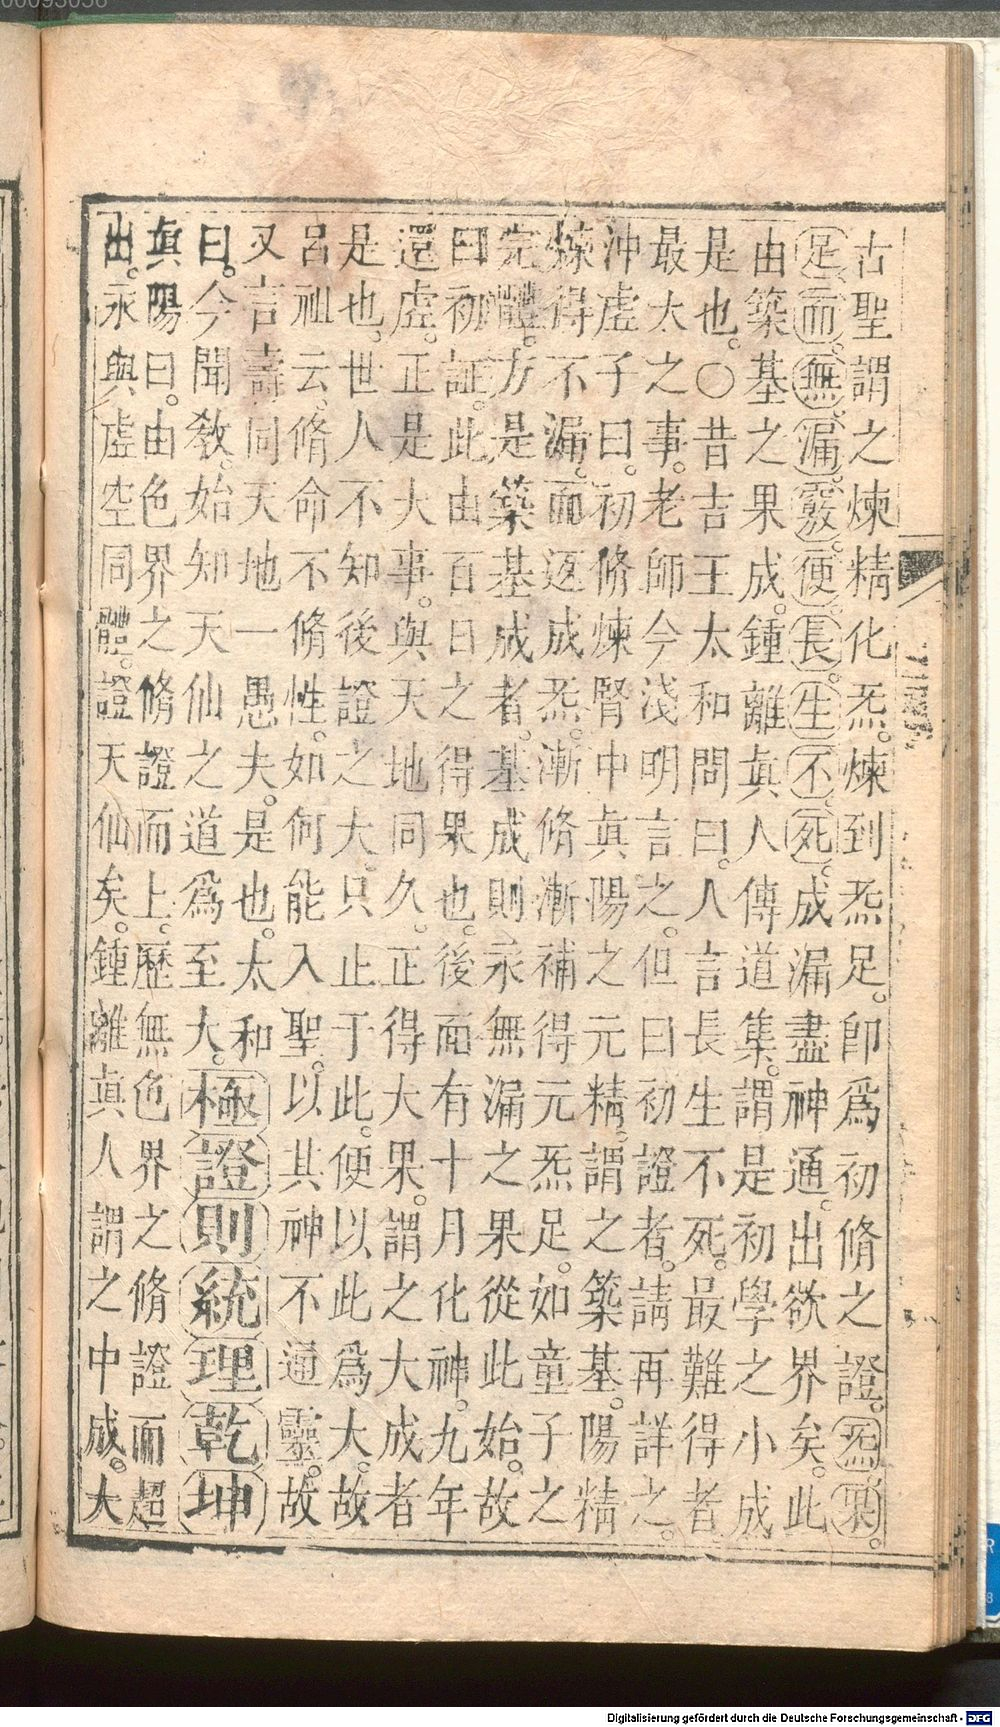 古聖謂之煉精化炁。煉到炁足。卽爲初脩之證。炁果。
足而無漏竅。便長生不死。成漏盡神通。出欲界矣。此
由築基之果成。鍾離眞人傳道集。謂是初學之小成
是也。〇昔吉王太和問曰。人言長生不死。最難得者
最太之事。老師今淺明言之。但曰初證者。請再詳之。
沖虛子曰。初脩煉腎中眞陽之元精。謂之築基。陽精
煉得不漏。而返成炁。漸脩漸補得元炁足。如童子之
完體。方是築基成者。基成則永無漏之果從此始。故
曰初証。此由百日之得果也。後面有十月化神。九年
還虛。正是大事。與天地同久。正得大果。謂之大成者
是也。世人不知後證之大。只止于此。便以此爲大。故
呂祖云。脩命不脩性。如何能入聖。以其神不通靈。故
又言壽同天地一愚夫。是也。太和
曰。今聞敎。始知天仙之道爲至大。極證則統理乾坤
眞陽曰。由色界之脩證而上。歷無色界之脩證而超
出。永與虛空同體。證天仙矣。鍾離眞人謂之中成。大
00093058
Digitalisierung gefördert durch die Deutsche Forschungsgemeinschaft - DFG